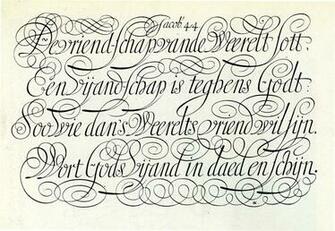 Jacob. 4.4
De vriendschap vande Weerelt sott:
Een vijandschap is teghens Godt:
Soo wie dan's Weerelts vriend wil sijn.
Wort Gods vijand in daed en schijn.